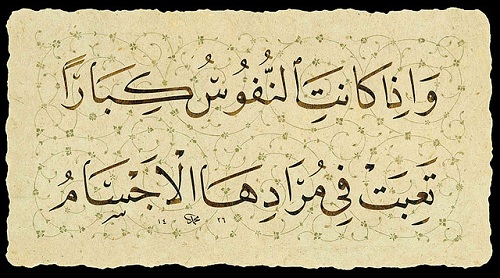 وَاِذَا كَانَتِ ٱلنُّفُوسُ كِبَارًا
تَعِبَتْ فِي مُرَادِهَا الْاَجْسَامُ
١٤ ٢٦